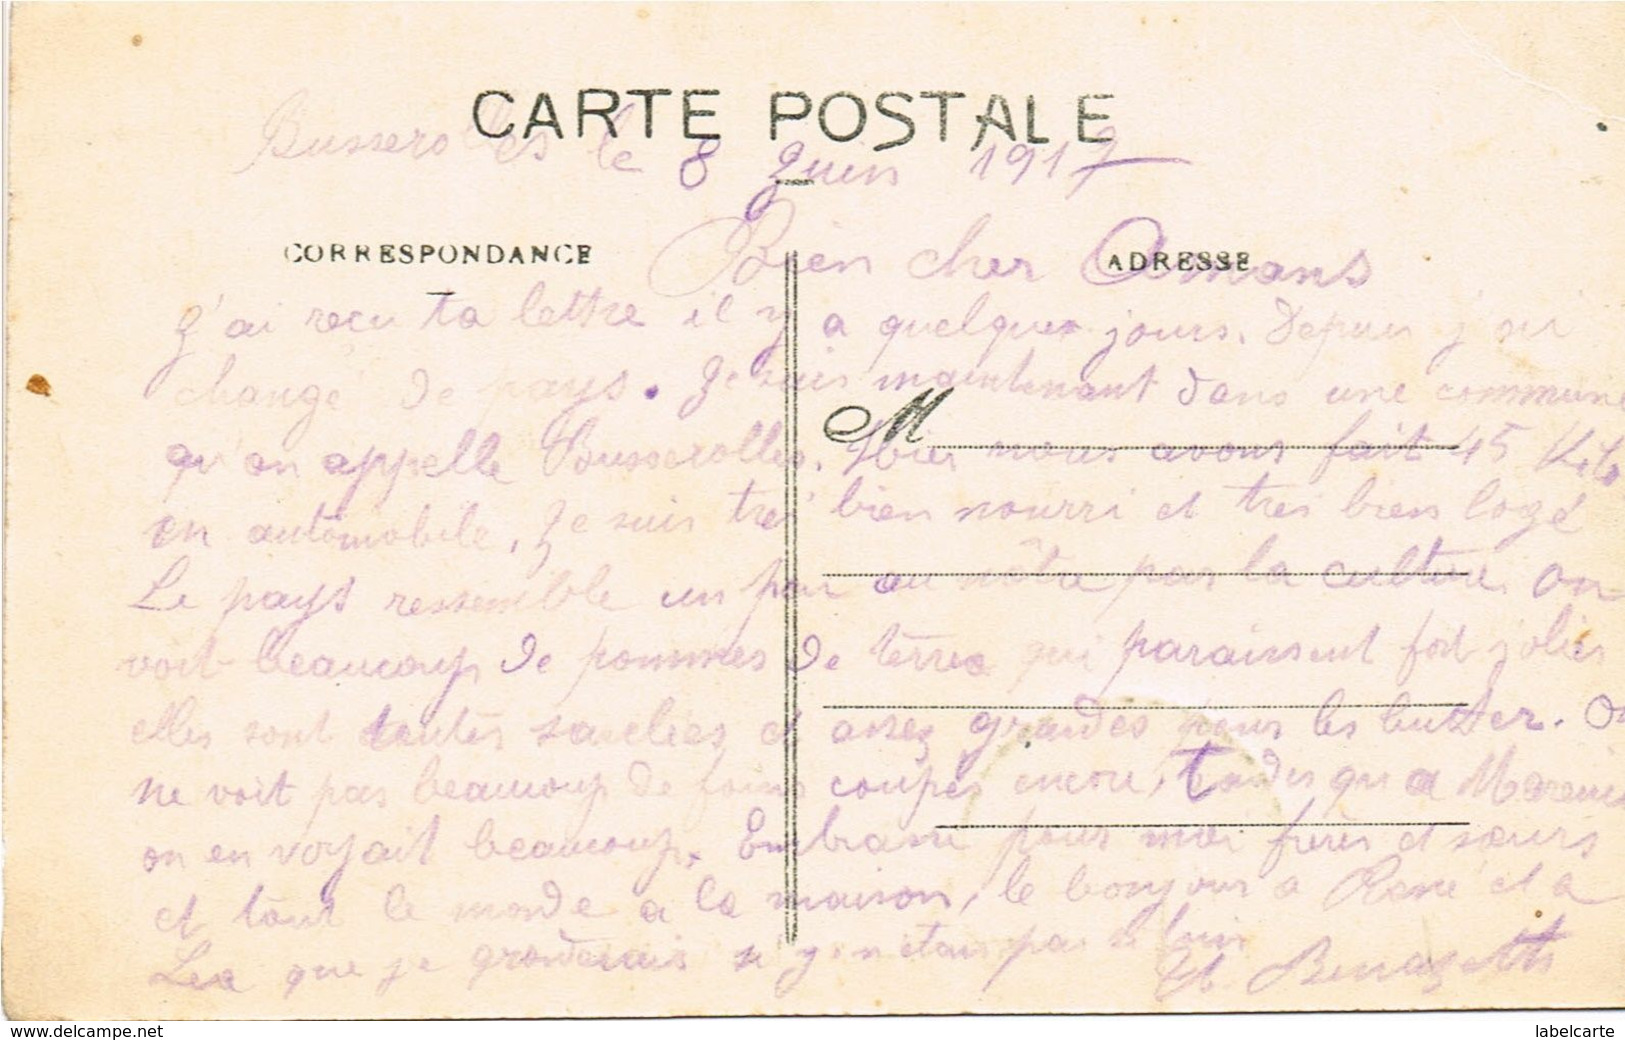 CARTE POSTALE
Busserolles le 8 Juin 1917
CORRESPONDANCE
ADRESSE
Bien cher Amans
J'ai reçu ta lettre il y a quelques jours. Depuis j'ai
changé de pays. Je suis maintenant dans une commune
M
qu'on appelle Busserolles. Hier nous avons fait 45 Kilo
en automobile, Je suis très bien nourri et très bien logé
Le pays ressemble un peu au nôtre par la culture. On
voit beaucoup de pommes de terres qui paraissent fort jolies
elles sont toutes sarclées et assez grandes pour les butter. On
ne voit pas beaucoup de foins coupés encore, tandis qu a
on en voyait beaucoup. Embrasse pour moi frères et sœurs
et tout le monde a la maison, le bonjour a et a
Lea que je si j'y n étais pas si loin
delcampe.net
labelcarte